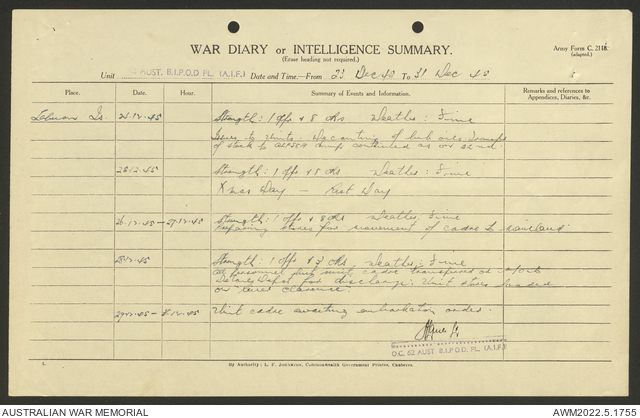 WAR DIARY or INTELLIGENCE SUMMARY.
(Erase heading not required.)
Army Form C. 2118.
(adapted.)
Unit AUST. B.I.P.O.D PL. (A.I.F.) Date and Time—From 23 Dec 45 To 31 Dec 45
Place. Date. Hour. Summary of Events and Information. Remarks and references to Appendices, Diaries, &c.
Is. 24-12-45 Strength: 1 Offr & 8 ORs : Fine
Issues to Units. Decanting of
of stock to dump continued as on 22nd.
25-12-45 Strength: 1 Offr & 8 ORs : Fine
Xmas Day — Rest Day
26-12-45 — 27-12-45 Strength: 1 Offr & 8 ORs Fine
Preparing stores for movement of cadre to mainland
28-12-45 Strength: 1 Offr & 3 ORs, : Fine
All personnel unit cadre transferred
Depot for discharge. Unit stores loaded
on
29-12-45 — 31-12-45 Unit cadre awaiting embarkation orders.
O.C. 62 AUST. B.I.P.O.D. PL. (A.I.F.)
By Authority: L. F. Johnston, Commonwealth Government Printer, Canberra
AUSTRALIAN WAR MEMORIAL
AWM2022.5.1755